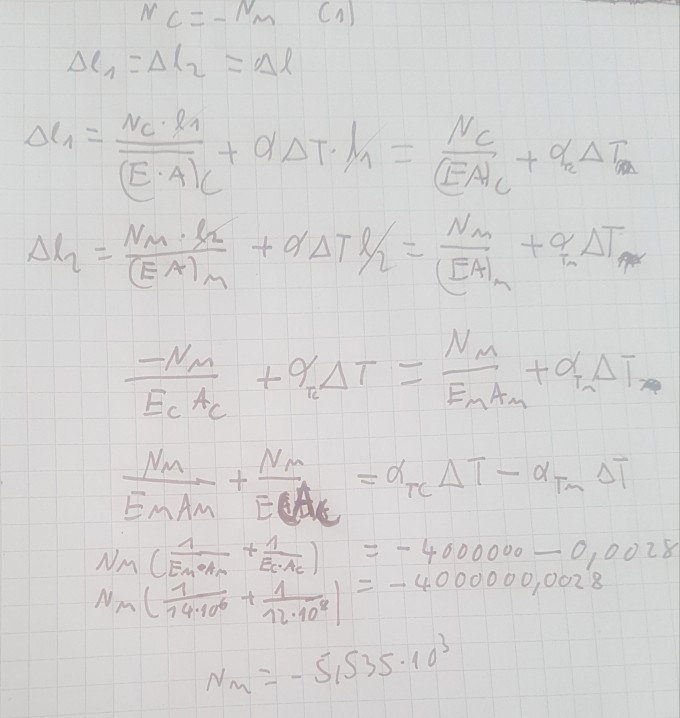 N_C = - N_M (1)
Δl_1 = Δl_2 = Δl
Δl_1 = N_C · l_1 / (E·A)_C + α ΔT · l_1 = N_C / (EA)_C + α_TC ΔT
Δl_2 = N_M · l_2 / (E A)_M + α ΔT l_2 = N_M / (EA)_m + α_Tm ΔT
-N_M / E_C A_C + α_TC ΔT = N_M / E_m A_m + α_Tm ΔT
N_M / E_M A_M + N_M / E_C A_C = α_TC ΔT - α_Tm ΔT
N_M (1 / E_M·A_M + 1 / E_C·A_C) = -4000000 - 0,0028
N_M (1 / 14·10^6 + 1 / 12·10^8) = -4000000,0028
N_M = - 5,535·10^3